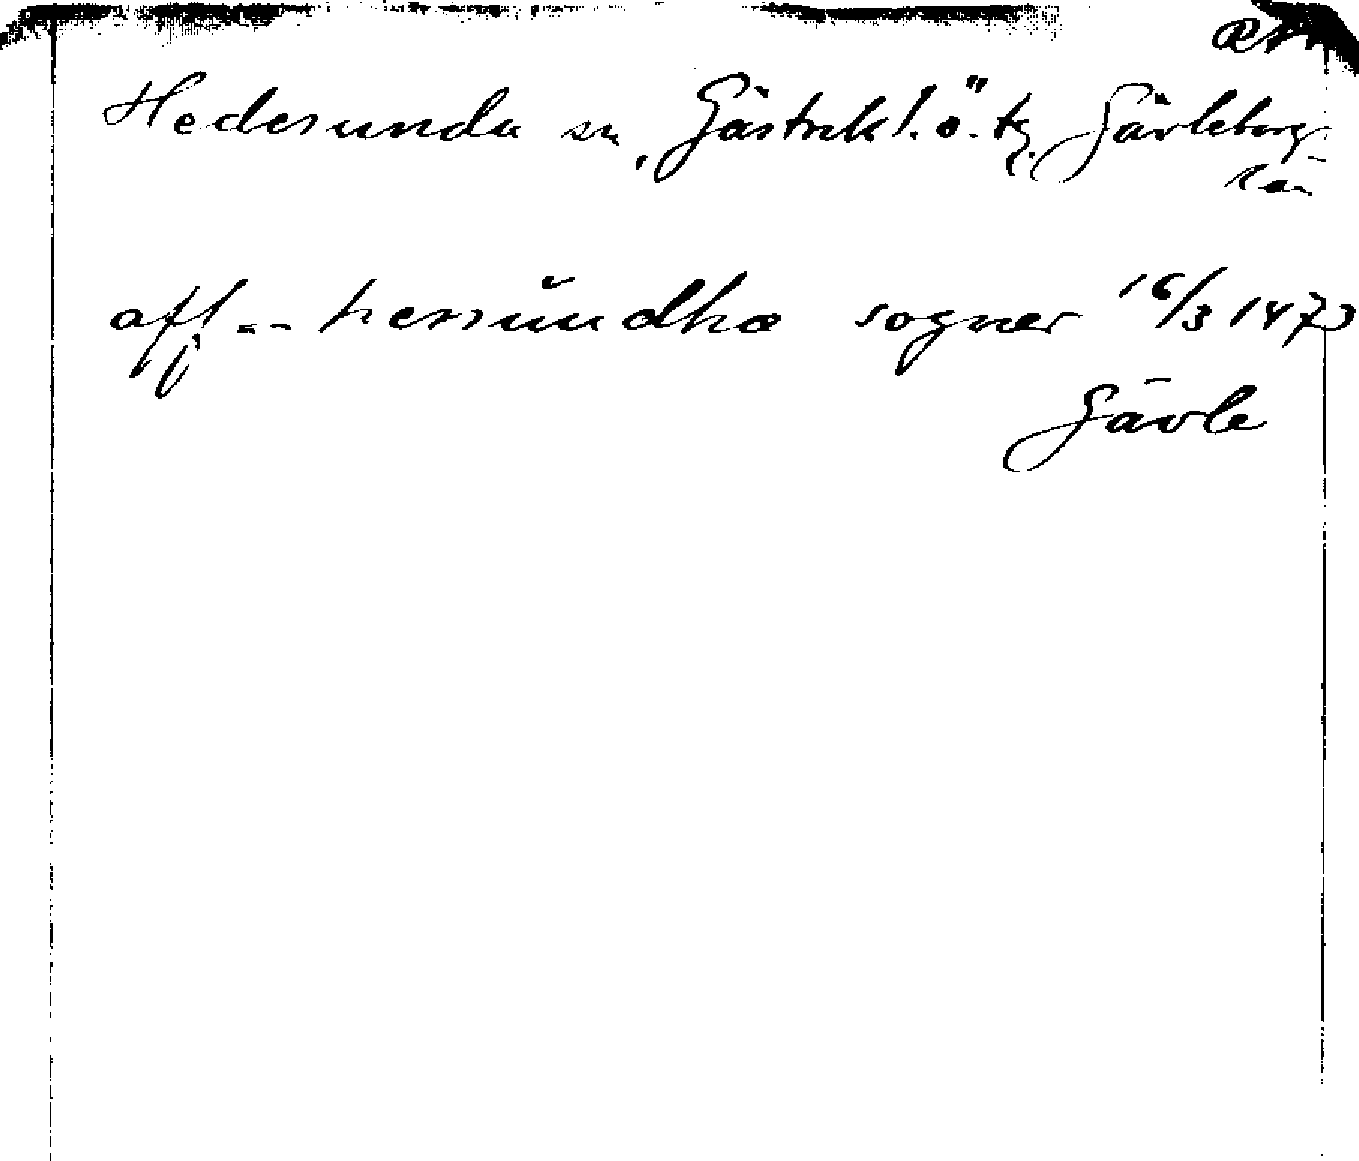 RA
Hedesunda sn, Gästrikl. ö. tg, Gävleborgs
län
aff -- hessŭndhæ sogner 16/3 1473
Gävle